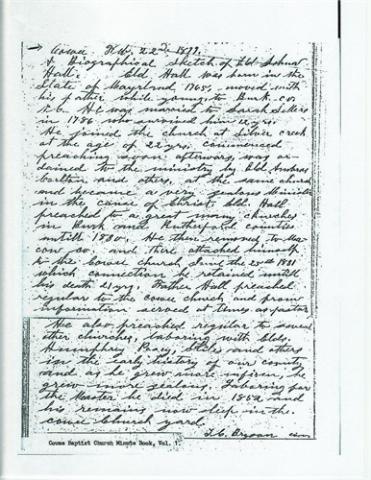 → Cowee Feb. 22nd 1877.
A Biographical Sketch of Eld Joshua
Hall. Eld. Hall was born in the
State of Mayrland, 1765, moved with
his father while young, to Burk. co.
N.C. He was married to Sarah Sellers
in 1786 who survived him 12 yrs.
He joined the church at Silver creek
at the age of 22 yrs. commenced
preaching soon afterwards, was or-
dained to the ministry by Eld
Carlton and others, at the same church
and became a very zealous Minister
in the cause of Christ. Eld. Hall
preached to a great many churches
in Burk and Rutherford counties
untill 1830. He then removed to Ma-
con Co. and there attached himself
to the Cowee church June the 25th 1831
which connection he retained untill
his death 21 yrs. Father Hall preached
regular to the cowee church and from
information served at times as pastor
He also preached regular to several
other churches, laboring with Elds.
Humphrey Posey, Stiles and others
in the early history of our county
and as he grew more infirm, he
grew more zealous. Laboring for
the Master he died in 1852 and
his remains now sleep in the
cowee Church yard.
T.C. Bryson
Cowee Baptist Church Minute Book, Vol. 1.